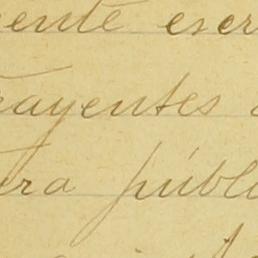 ente escr
rayentes
ra públi